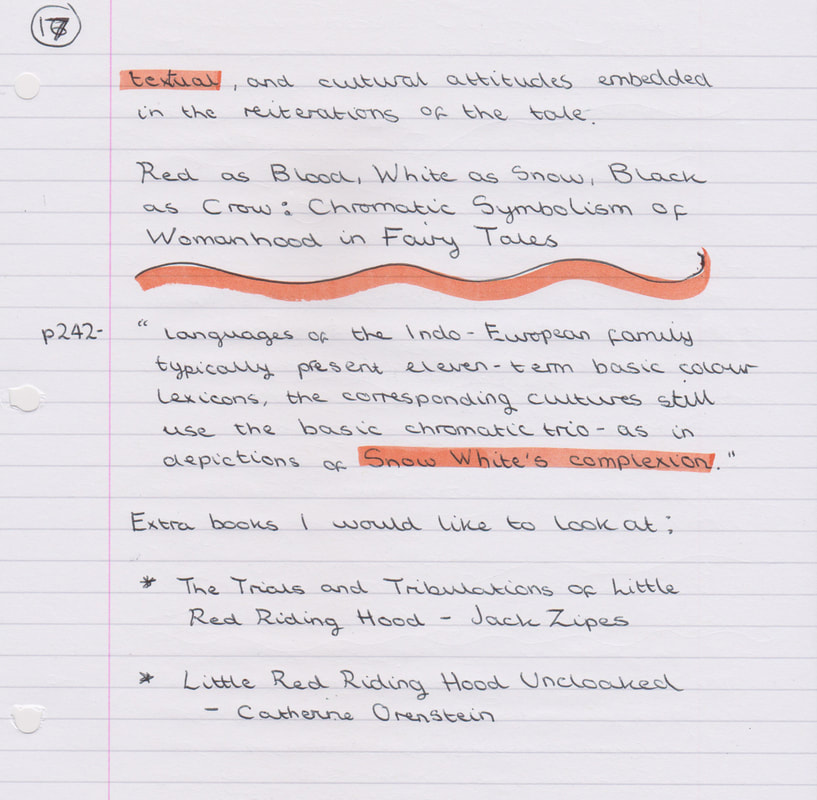 17
textual, and cultural attitudes embedded
in the reiterations of the tale.
Red as Blood, White as Snow, Black
as Crow: Chromatic Symbolism of
Womanhood in Fairy Tales
p242- "Languages of the Indo-European family
typically present eleven-term basic colour
lexicons, the corresponding cultures still
use the basic chromatic trio - as in
depictions of Snow White's complexion."
Extra books I would like to look at;
* The Trials and Tribulations of Little
Red Riding Hood - Jack Zipes
* Little Red Riding Hood Uncloaked
- Catherine Orenstein